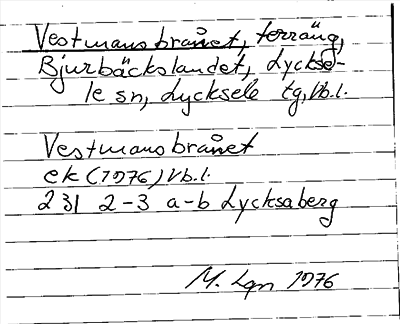 Vestmansbrånet, terräng,
Bjurbäckslandet, Lyckse-
le sn, Lycksele tg, Vb.l.
Vestmansbrånet
ek (1976) Vb.l.
231 2-3 a-b Lycksaberg
M. Lgn 1976